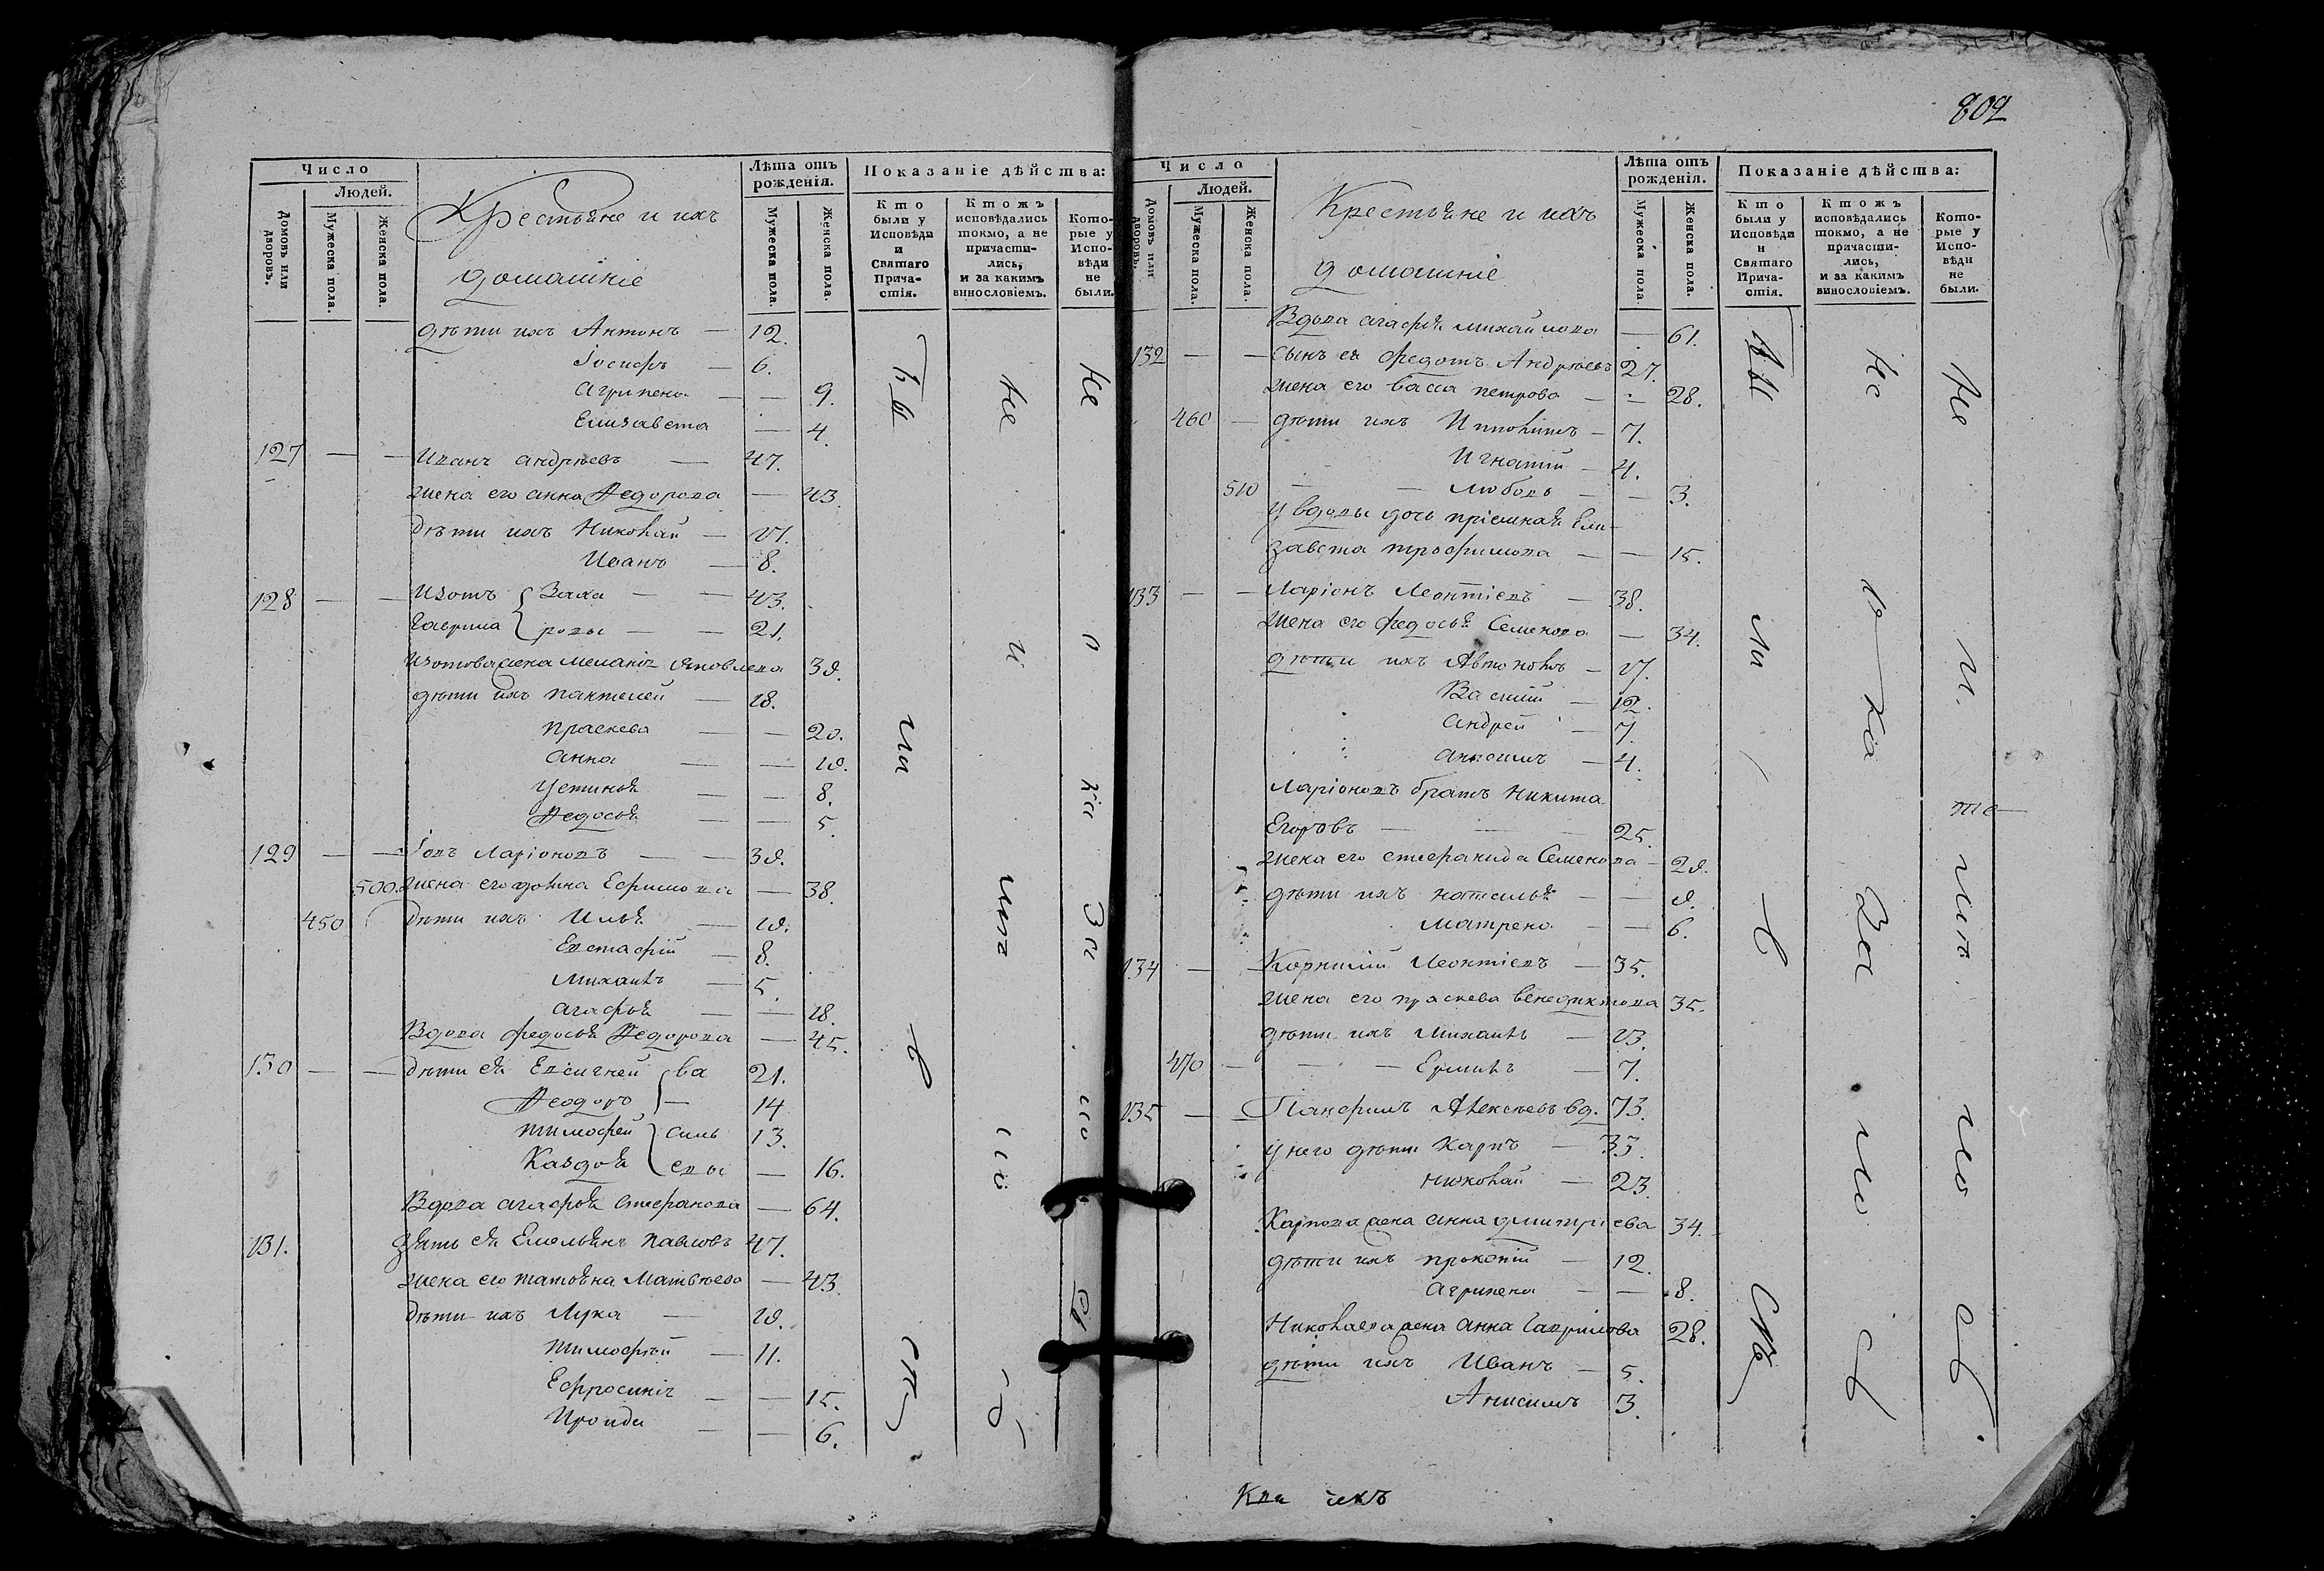 Число
Людей.
Домовъ или дворовъ.
Мужеска пола.
Женска пола.
Крестьяне и ихъ
домашніе
Лѣта отъ рожденія.
Мужеска пола.
Женска пола.
Показаніе дѣйства:
Кто были у Исповѣди и Святаго Причастія.
Ктожъ исповѣдались токмо, а не причастились, и за какимъ винословіемъ.
Которые у Исповѣди не были.
дѣти ихъ Антонъ — 12.
Іосифъ — 6.
Агрипена — — 9.
Елизавета — 4.
127 — — Иванъ Андрѣевъ — 47.
жена его Анна Ѳедорова — 43.
дѣти ихъ Николай — 17.
Иванъ — 8.
128 — — Изотъ Заха — — 43.
Гаврила ровы — — 21.
Изотова жена Меланія Яковлева 39.
дѣти ихъ Пантелей — 18.
Праскева — — 20.
Анна — — 19.
Устинья — — 8.
Ѳедосья — — 5.
129 — — Іовъ Ларіоновъ — — 39.
500. жена его Ефимова — 38.
450 дѣти ихъ Илья — 19.
Евстафій — 8.
Михаилъ — 5.
Агафья — — 18.
Вдова Федосья Ѳедорова — 45.
130 — — дѣти ея Ва 21.
Ѳеодоръ — 14
Тимофей силь 13.
евы — 16.
Вдова Агафья Стефанова — 64.
131. Зять ея Емельянъ Павловъ 47.
жена его Татьяна Матвѣева — 43.
дѣти ихъ Лука — 19.
Тимофѣй — 11.
Ефросинія — — 15.
Ираида — — 6.
802
Число
Людей.
Домовъ или дворовъ.
Мужеска пола.
Женска пола.
Крестьяне и ихъ
домашніе
Лѣта отъ рожденія.
Мужеска пола.
Женска пола.
Показаніе дѣйства:
Кто были у Исповѣди и Святаго Причастія.
Ктожъ исповѣдались токмо, а не причастились, и за какимъ винословіемъ.
Которые у Исповѣди не были.
Вдова Агафья Михайлова — 61.
132 — — сынъ ея Федотъ Андрѣевъ 27.
жена его Васса Петрова — — 28.
460 — дѣти ихъ Ипполитъ — 7.
Игнатій — 4.
510 — — Любовь — — 3.
у вдовы дочь пріемная Ели-
завета Трофимова — — 15.
133 — — Ларіонъ Леонтіевъ — 38.
жена его Федосья Семенова — 34.
дѣти ихъ Автономъ — 17.
Василій — 12.
Андрей — 7.
— 4.
Ларіоновъ братъ Никита
Егоровъ — — — 25.
жена его Стефанида Семенова — 29.
дѣти ихъ Наталья — — 9.
Матрена — — 6.
134 — — Корнилій Леонтіевъ — 35.
жена его Праскева Венедиктова 35.
дѣти ихъ Михаилъ — 13.
470 — — — Ермилъ — 7.
135 — — Панфилъ Алексѣевъ вд. 73.
у него дѣти Карпъ — 33.
Николай — 23.
Карпова жена Анна Дмитріева 34.
дѣти ихъ Прокопій — 12.
Агрипена — — 8.
Николаева жена Анна Гаврилова 28.
дѣти ихъ Иванъ — 5.
Анисимъ 3.